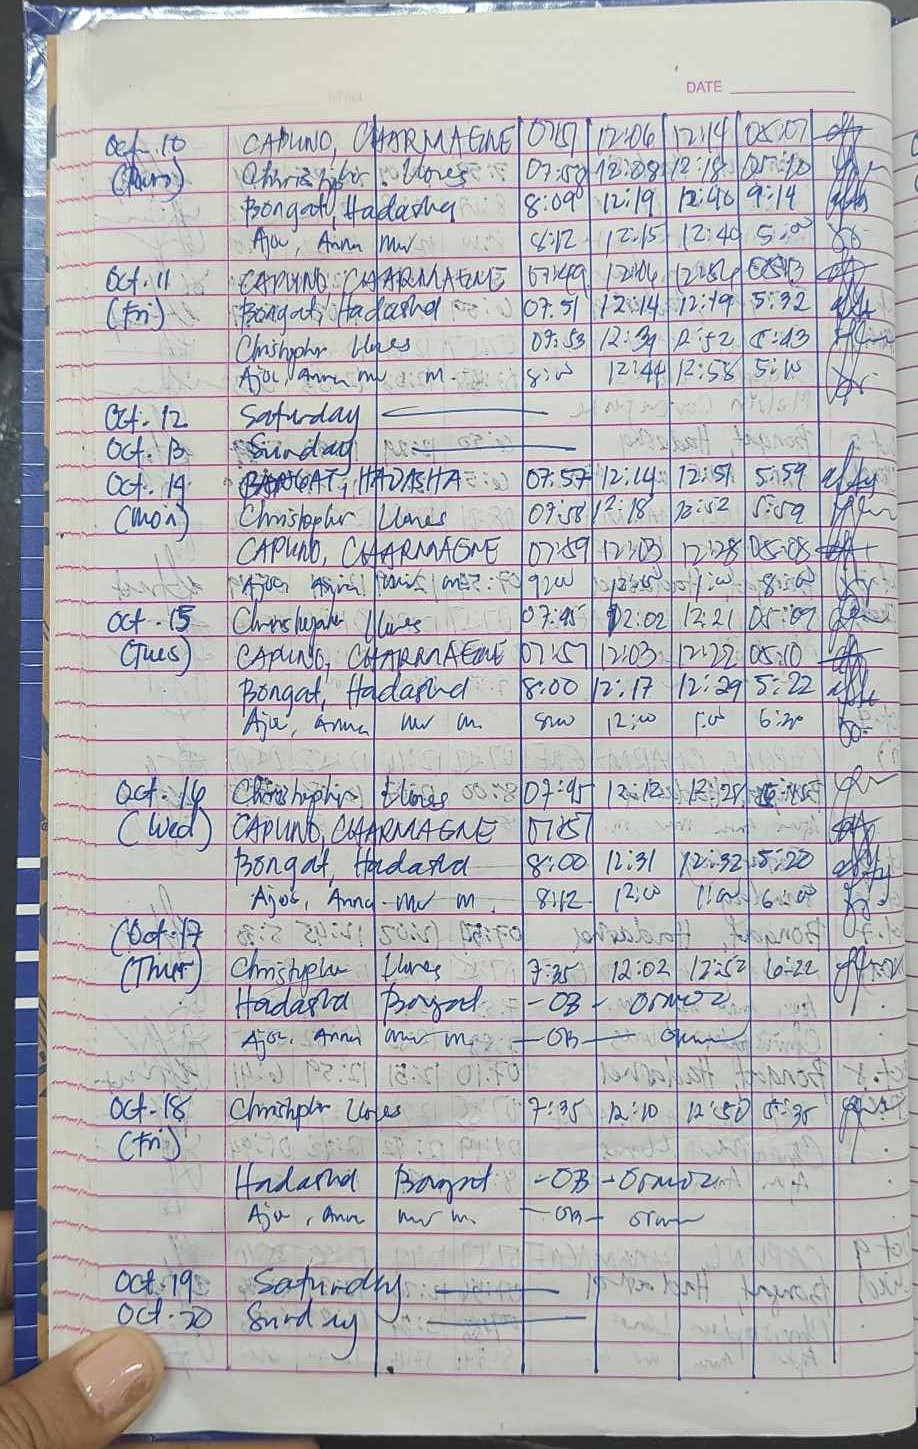 DATE
Oct. 10 CAPUNO, CHARMAGNE 07:51 12:06 12:14 05:07
(Thurs) Christopher Llones 07:58 12:08 12:18 05:10
Bongat, Hadasha 8:09 12:19 12:40 9:14
Ajoc, Anna 8:12 12:15 12:40 5:00
Oct. 11 CAPUNO, CHARMAGNE 07:49 12:06
(Fri) Bongat, Hadasha 07:51 12:14 12:19 5:32
Christopher Llones 07:53 12:39 12:52 5:43
Ajoc, Anna m. 8:00 12:44 12:58 5:10
Oct. 12 Saturday
Oct. 13 Sunday
Oct. 14 BONGAT, HADASHA 07:57 12:14 12:51 5:59
(Mon) Christopher Llones 07:58 12:18 12:52 5:59
CAPUNO, CHARMAGNE 07:59 12:03 12:28 05:08
Ajoc, 9:00 1:00 8:00
Oct. 15 Christopher Llones 07:45 12:02 12:21 05:07
(Tues) CAPUNO, CHARMAGNE 07:57 12:03 12:22 05:10
Bongat, Hadasha 8:00 12:17 12:29 5:22
Ajoc, Anna m. 8:00 12:00 1:00 6:30
Oct. 16 Christopher Llones 07:45 12:12 12:28
(Wed) CAPUNO, CHARMAGNE 07:57
Bongat, Hadasha 8:00 12:31 12:32 5:20
Ajoc, Anna m. 8:12 12:00 1:00 6:00
(Oct. 17
(Thur) Christopher Llones 7:35 12:02 12:52 6:22
Hadasha Bongat -OB - Ormoc
Ajoc, Anna m. - OB - Ormoc
Oct. 18 Christopher Llones 7:35 12:10 12:50 5:35
(Fri)
Hadasha Bongat -OB - Ormoc
Ajoc, Anna m. - OB - Ormoc
Oct. 19 Saturday
Oct. 20 Sunday